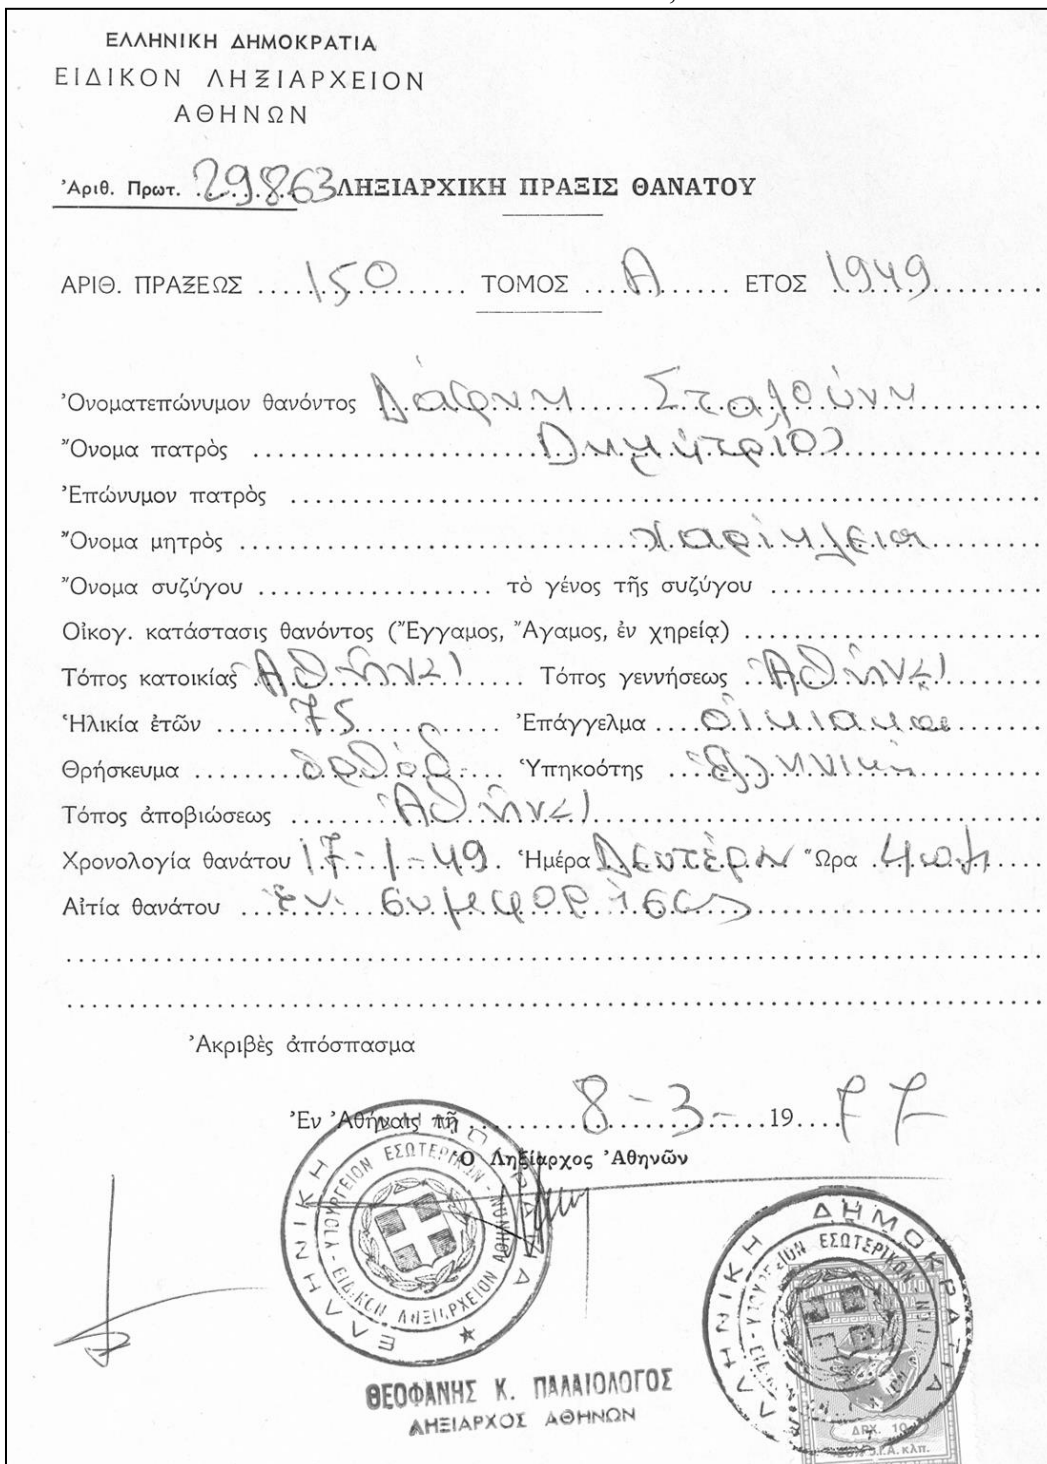 ΕΛΛΗΝΙΚΗ ΔΗΜΟΚΡΑΤΙΑ
ΕΙΔΙΚΟΝ ΛΗΞΙΑΡΧΕΙΟΝ
ΑΘΗΝΩΝ
Ἀριθ. Πρωτ. 29863 ΛΗΞΙΑΡΧΙΚΗ ΠΡΑΞΙΣ ΘΑΝΑΤΟΥ
ΑΡΙΘ. ΠΡΑΞΕΩΣ 150 ΤΟΜΟΣ Α ΕΤΟΣ 1949
Ὀνοματεπώνυμον θανόντος Δάφνη Σταλούνη
Ὄνομα πατρὸς Δημήτριος
Ἐπώνυμον πατρὸς
Ὄνομα μητρὸς Χαρίκλεια
Ὄνομα συζύγου τὸ γένος τῆς συζύγου
Οἰκογ. κατάστασις θανόντος (Ἔγγαμος, Ἄγαμος, ἐν χηρείᾳ)
Τόπος κατοικίας Ἀθῆναι Τόπος γεννήσεως Ἀθῆναι
Ἡλικία ἐτῶν 75 Ἐπάγγελμα οἰκιακά
Θρήσκευμα ὀρθόδ. Ὑπηκοότης ἑλληνική
Τόπος ἀποβιώσεως Ἀθῆναι
Χρονολογία θανάτου 17-1-49 Ἡμέρα Δευτέρα Ὥρα
Αἰτία θανάτου ἐγκ. συμφόρισις
Ἀκριβὲς ἀπόσπασμα
Ἐν Ἀθήναις τῇ 8-3- 1977
Ὁ Ληξίαρχος Ἀθηνῶν
ΕΛΛΗΝΙΚΗ ΔΗΜΟΚΡΑΤΙΑ
ΥΠΟΥΡΓΕΙΟΝ ΕΣΩΤΕΡΙΚΩΝ - ΕΙΔΙΚΟΝ ΛΗΞΙΑΡΧΕΙΟΝ ΑΘΗΝΩΝ
ΕΛΛΗΝΙΚΗ ΔΗΜΟΚΡΑΤΙΑ
ΕΣΩΤΕΡΙΚΩΝ
ΘΕΟΦΑΝΗΣ Κ. ΠΑΛΑΙΟΛΟΓΟΣ
ΛΗΞΙΑΡΧΟΣ ΑΘΗΝΩΝ
ΔΡΧ. 10